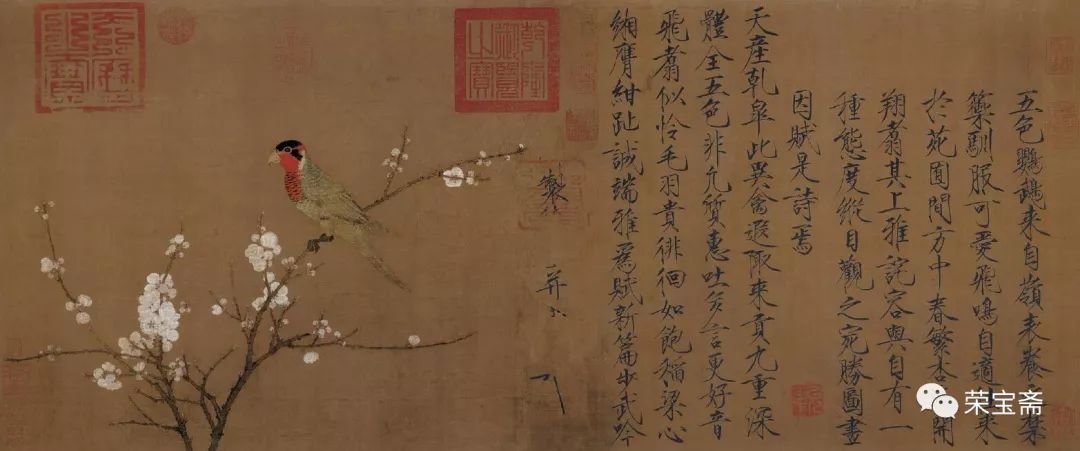 五色鸚鵡來自嶺表養禁
籞馴服可愛飛鳴自適來
於苑囿間方中春繁杏開
翔翥其上雅詫容與自有一
種態度縱目觀之宛勝圖畫
因賦是詩焉
天產乾皋此異禽遐陬來貢九重深
體全五色非凡質惠吐多言更好音
飛翥似憐毛羽貴徘徊如飽稻粱心
緗膺紺趾誠端雅為賦新篇步武吟
製
并
乾隆御覽之寶
荣宝斋